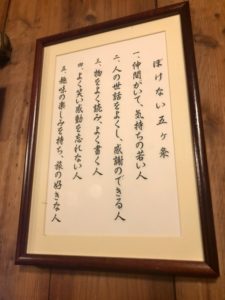 ぼけない五ヶ条
一、仲間がいて、気持ちの若い人
二、人の世話をよくし、感謝のできる人
三、物をよく読み、よく書く人
四、よく笑い感動を忘れない人
五、趣味の楽しみを持ち、旅の好きな人